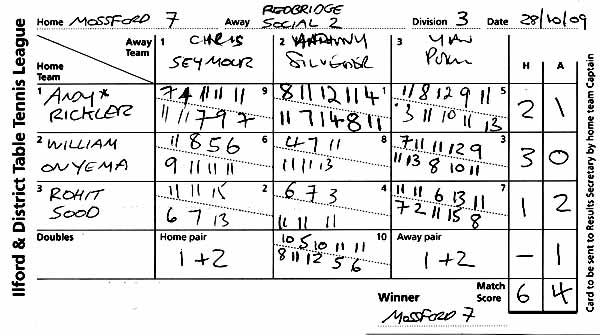 Ilford & District Table Tennis League
Home MOSSFORD 7 Away REDBRIDGE SOCIAL 2 Division 3 Date 28/10/09
Away Team 1 CHRIS SEYMOUR 2 ANTHONY SILVESTER 3 IAN H A
Home Team
1 ANDY * RICKLER 7 4 11 11 11 9 8 11 12 11 4 1 11 8 12 9 11 5 2 1
11 11 7 9 7 11 7 14 8 11 13 11 10 11 13
2 WILLIAM ONYEMA 11 8 5 6 6 4 7 11 8 7 11 11 12 9 3 3 0
9 11 11 11 11 11 13 11 13 8 10 11
3 ROHIT SOOD 11 11 15 2 6 7 3 4 11 11 6 13 11 7 1 2
6 7 13 11 11 11 7 2 11 15 8
Doubles Home pair 10 5 10 11 11 10 Away pair
1+2 8 11 12 5 6 1+2 - 1
Winner Match Score 6 4
MOSSFORD 7
Card to be sent to Results Secretary by home team Captain